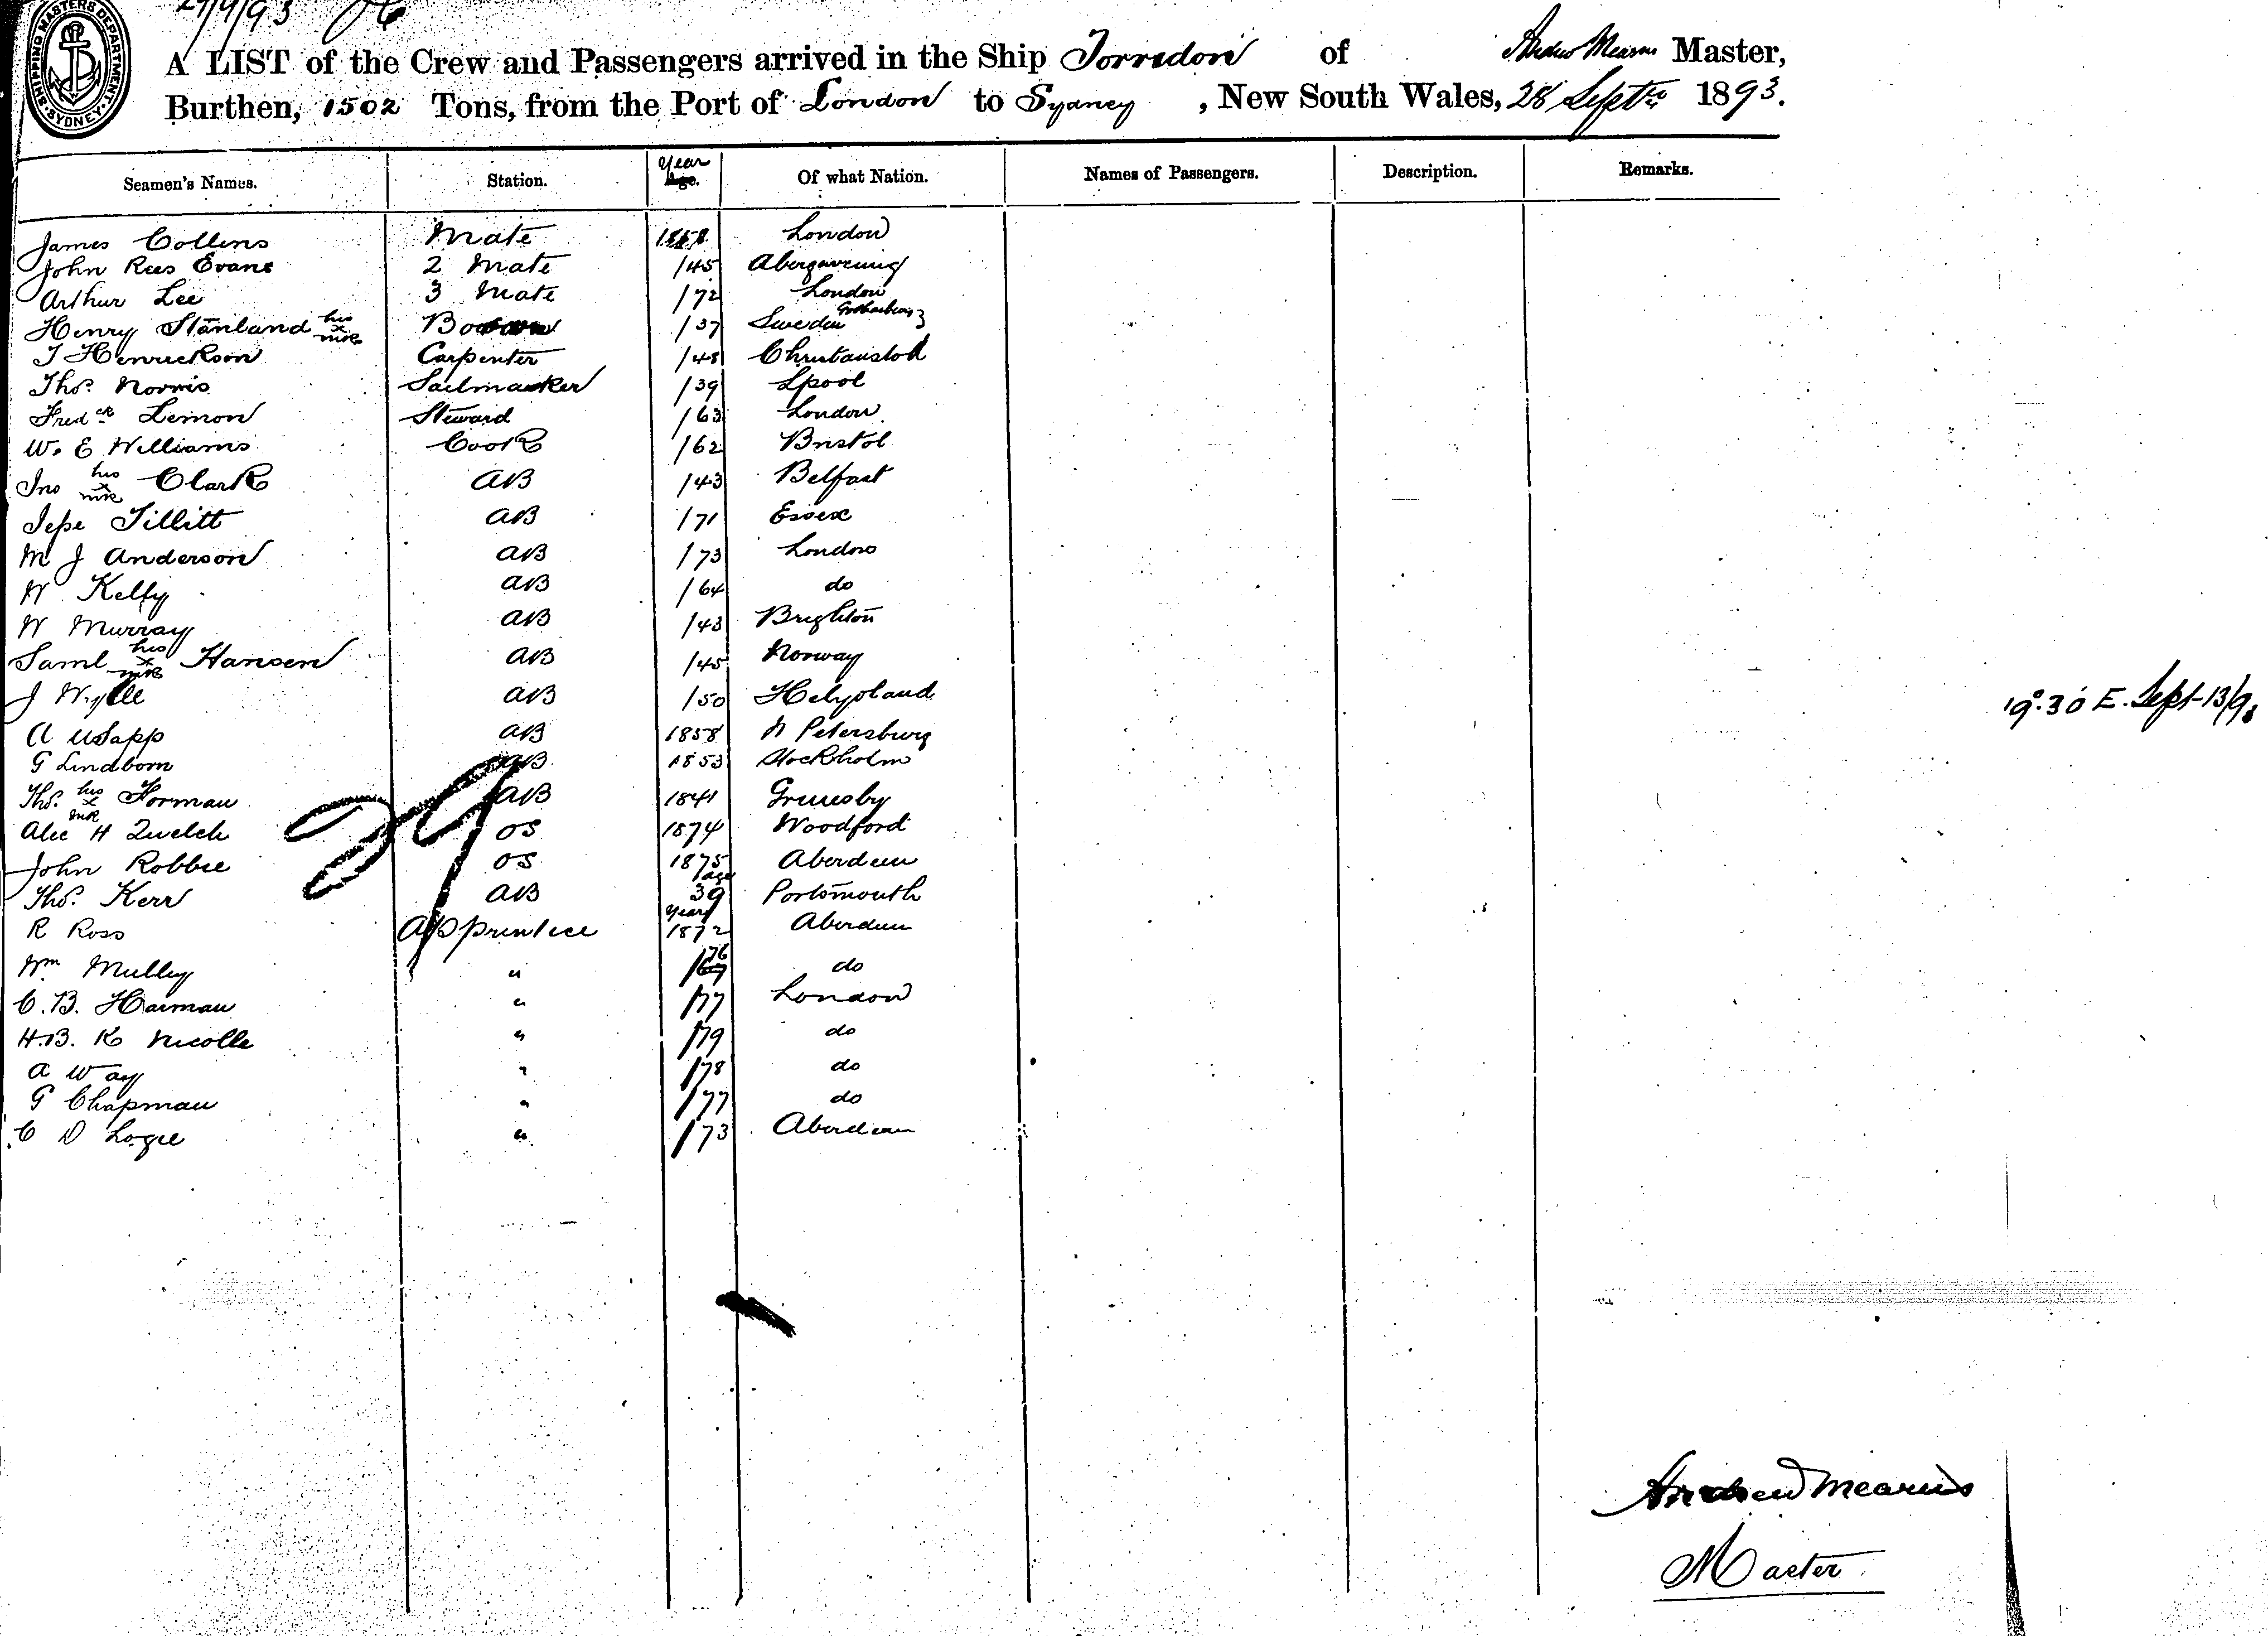 29/9/93
SHIPPING MASTERS DEPARTMENT SYDNEY
A LIST of the Crew and Passengers arrived in the Ship Torridon of Andrew Mearns Master,
Burthen, 1502 Tons, from the Port of London to Sydney, New South Wales, 28 Septr 1893.
Seamen's Names. Station. Year Age. Of what Nation. Names of Passengers. Description. Remarks.
James Collins Mate London
John Rees Evans 2 Mate /45 Abergavenny
Arthur Lee 3 Mate /72 London
Henry Stanland his x mk /37 Sweden
J Henrickson Carpenter /48 Christianstad
Thos. Norris Sailmaker /39 Lpool
Fredck Lemon Steward /63 London
W. E Williams Cook /62 Bristol
Jno his x mk Clark AB /43 Belfast
Jepe Tillitt AB /71 Essex
M J Anderson AB /73 London
W Kelly AB /64 do
W Murray AB /43 Brighton
Saml his x mk Hansen AB /45 Norway
J Wylle AB /50 Helgoland
A AB 1858 Petersburg
G Lindbom AB 1853 Stockholm
Thos. his x mk Forman AB 1841 Grimesby
Alec H Quelch OS 1874 Woodford
John Robbie OS 1875 Aberdeen
Thos. Kerr AB age 39 Portsmouth
R Ross Apprentice year 1872 Aberdeen
Wm Mulley " /76 do
C. B. Harman " /77 London
H. B. K Nicolle " /79 do
A Way " /78 do
G Chapman " /77 do
C D Logie " /73 Aberdeen
29
19°.30' E. Sept 13/93
Andrew Mearns
Master